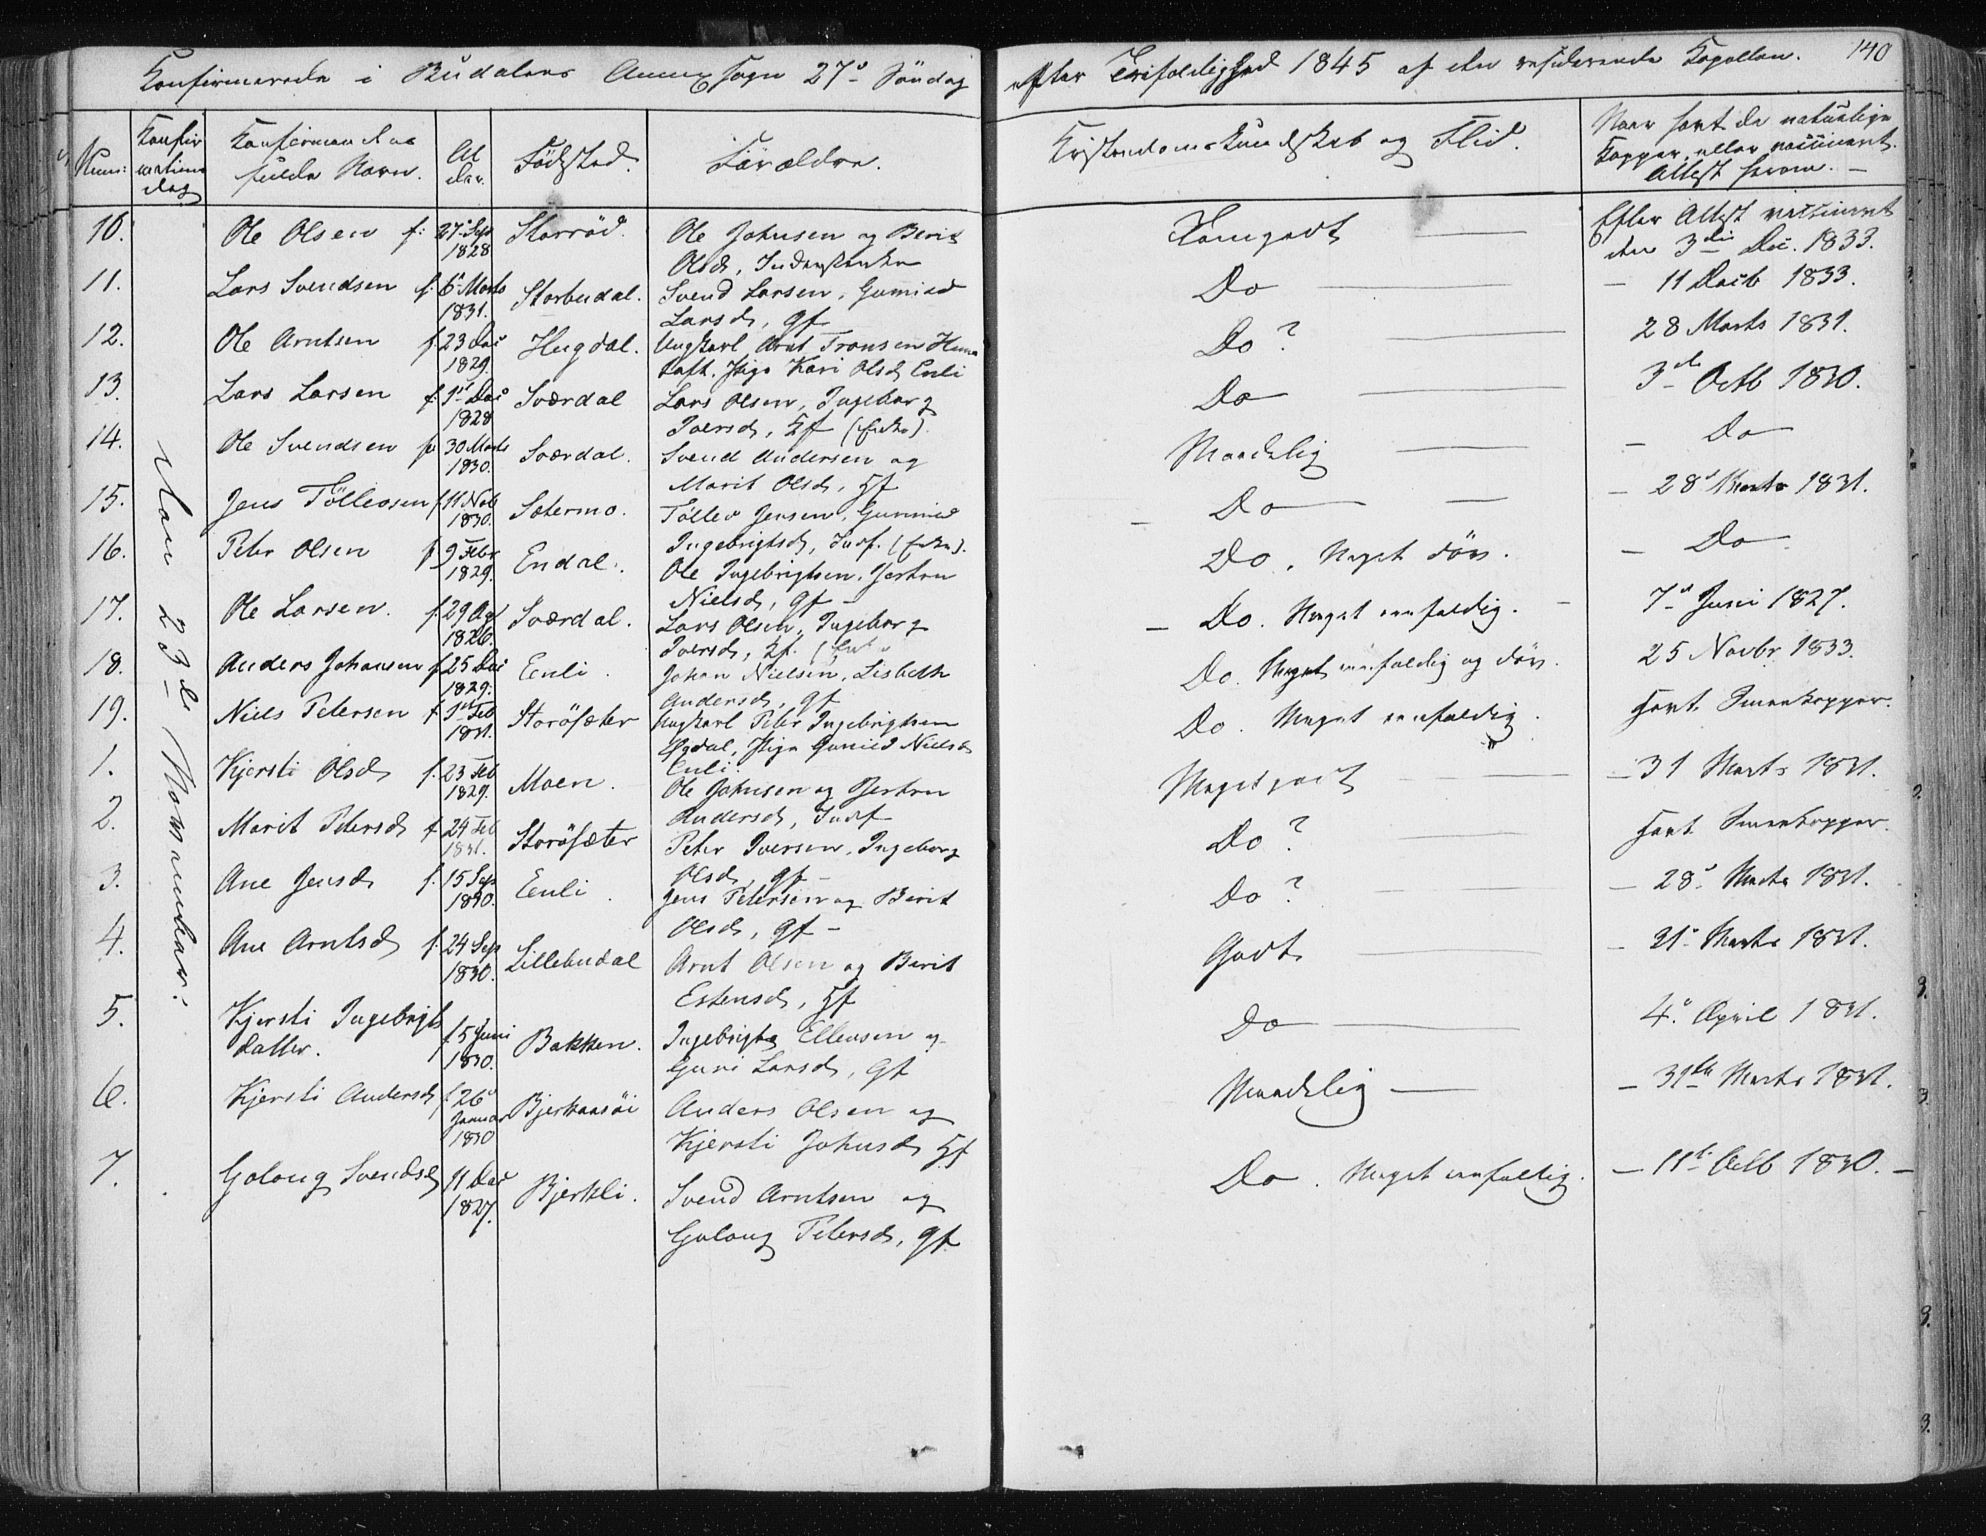 Konfirmerede i Budalens Annex Sogn 27de Søndag efter Trifoldighed 1845 af den residerende Kapellan. 140
Num: Konfirmations dag Konfirmandens fulde Navn. Al der. Fødested. Forældre. Kristendomskundskab og Flid. Naar havt de naturlige Kopper, eller vaccineret. Attest herom.
Den 23de November:
10. Ole Olsen f: 27de Sep 1828 Storrød. Ole Johnsen og Berit Olsd, Inderst Temgodt Efter Attest vaccineret den 3die Dec. 1833.
11. Lars Svendsen f. 6te Marts 1831. Storbudal. Svend Larsen, Gunild Larsd, gf Do — 11 Decb 1833.
12. Ole Arntsen f 23 Dec 1829. Hugdal. Ungkarl Arnt Tronsen, Pige Kari Olsd Enli Do? 28 Marts 1831.
13. Lars Larsen f. 1ste Dec 1828 Sværdal Lars Olsen, Ingeborg Iversd, Hf (Enke). Do 3de Octb 1830.
14. Ole Svendsen f 30 Marts 1830. Sværdal. Svend Andersen og Marit Olsd, Hf Maadelig — Do
15. Jens Tøllevsen f 11 Nov 1830. Sætermo. Tøllev Jensen, Gunild Ingebrigtsd, Indf. (Enke). Do — 28de Marts 1831.
16. Peter Olsen f 9 Febr 1829. Endal. Ole Ingebrigtsen, Nielsd, gf Do. Meget døv. — Do
17. Ole Larsen. f. 29 Aug 1826. Sværdal. Lars Olsen, Ingeborg Iversd, Hf. (Enke Do. Meget eenfoldig. 7de Juni 1827.
18. Anders Johansen f 25 Dec 1829. Eenli. Johan Nielsen, Lisbeth Andersd, gf Do. Meget eenfoldig og døv. 25 Novbr 1833.
19. Niels Petersen f 1ste Feb 1831. Storøsæter Ungkarl Peter Ingebrigtsen, Pige Gunild Nielsd Enli. Do. Meget eenfoldig. Havt Smaakopper.
1. Kjersti Olsd f. 23 Feb 1829. Moen. Ole Johnsen og Andersd, Indf Megetgodt — 31 Marts 1831.
2. Marit Petersd f 24 Feb 1831. Storøsæter Peter Iversen, Ingeborg Olsd, gf Do? Havt Smaakopper.
3. Ane Jensd f. 15 Sep 1830. Eenli. Jens Petersen og Berit Olsd, gf Do? — 28de Marts 1831.
4. Ane Arntsd f: 24 Sep 1830. Lillebudal Arnt Olsen og Berit Estensd, Hf Godt — 21de Marts 1831.
5. Kjersti Ingebrigts datter. f 5 Juni 1830. Bakken. Ingebrigt Ellevsen og Guri Larsd, gf Do 4de April 1831.
6. Kjersti Andersd f. 26de Januar 1830 Bjerkaasøi Anders Olsen og Kjersti Johnsd Hf Maadelig — 31te Marts 1831.
7. Golaug Svendsd 11 Dec 1827. Bjerkli. Svend Arntsen og Golaug Petersd, gf Do. Meget eenfoldig. — 11te Octb 1830. —